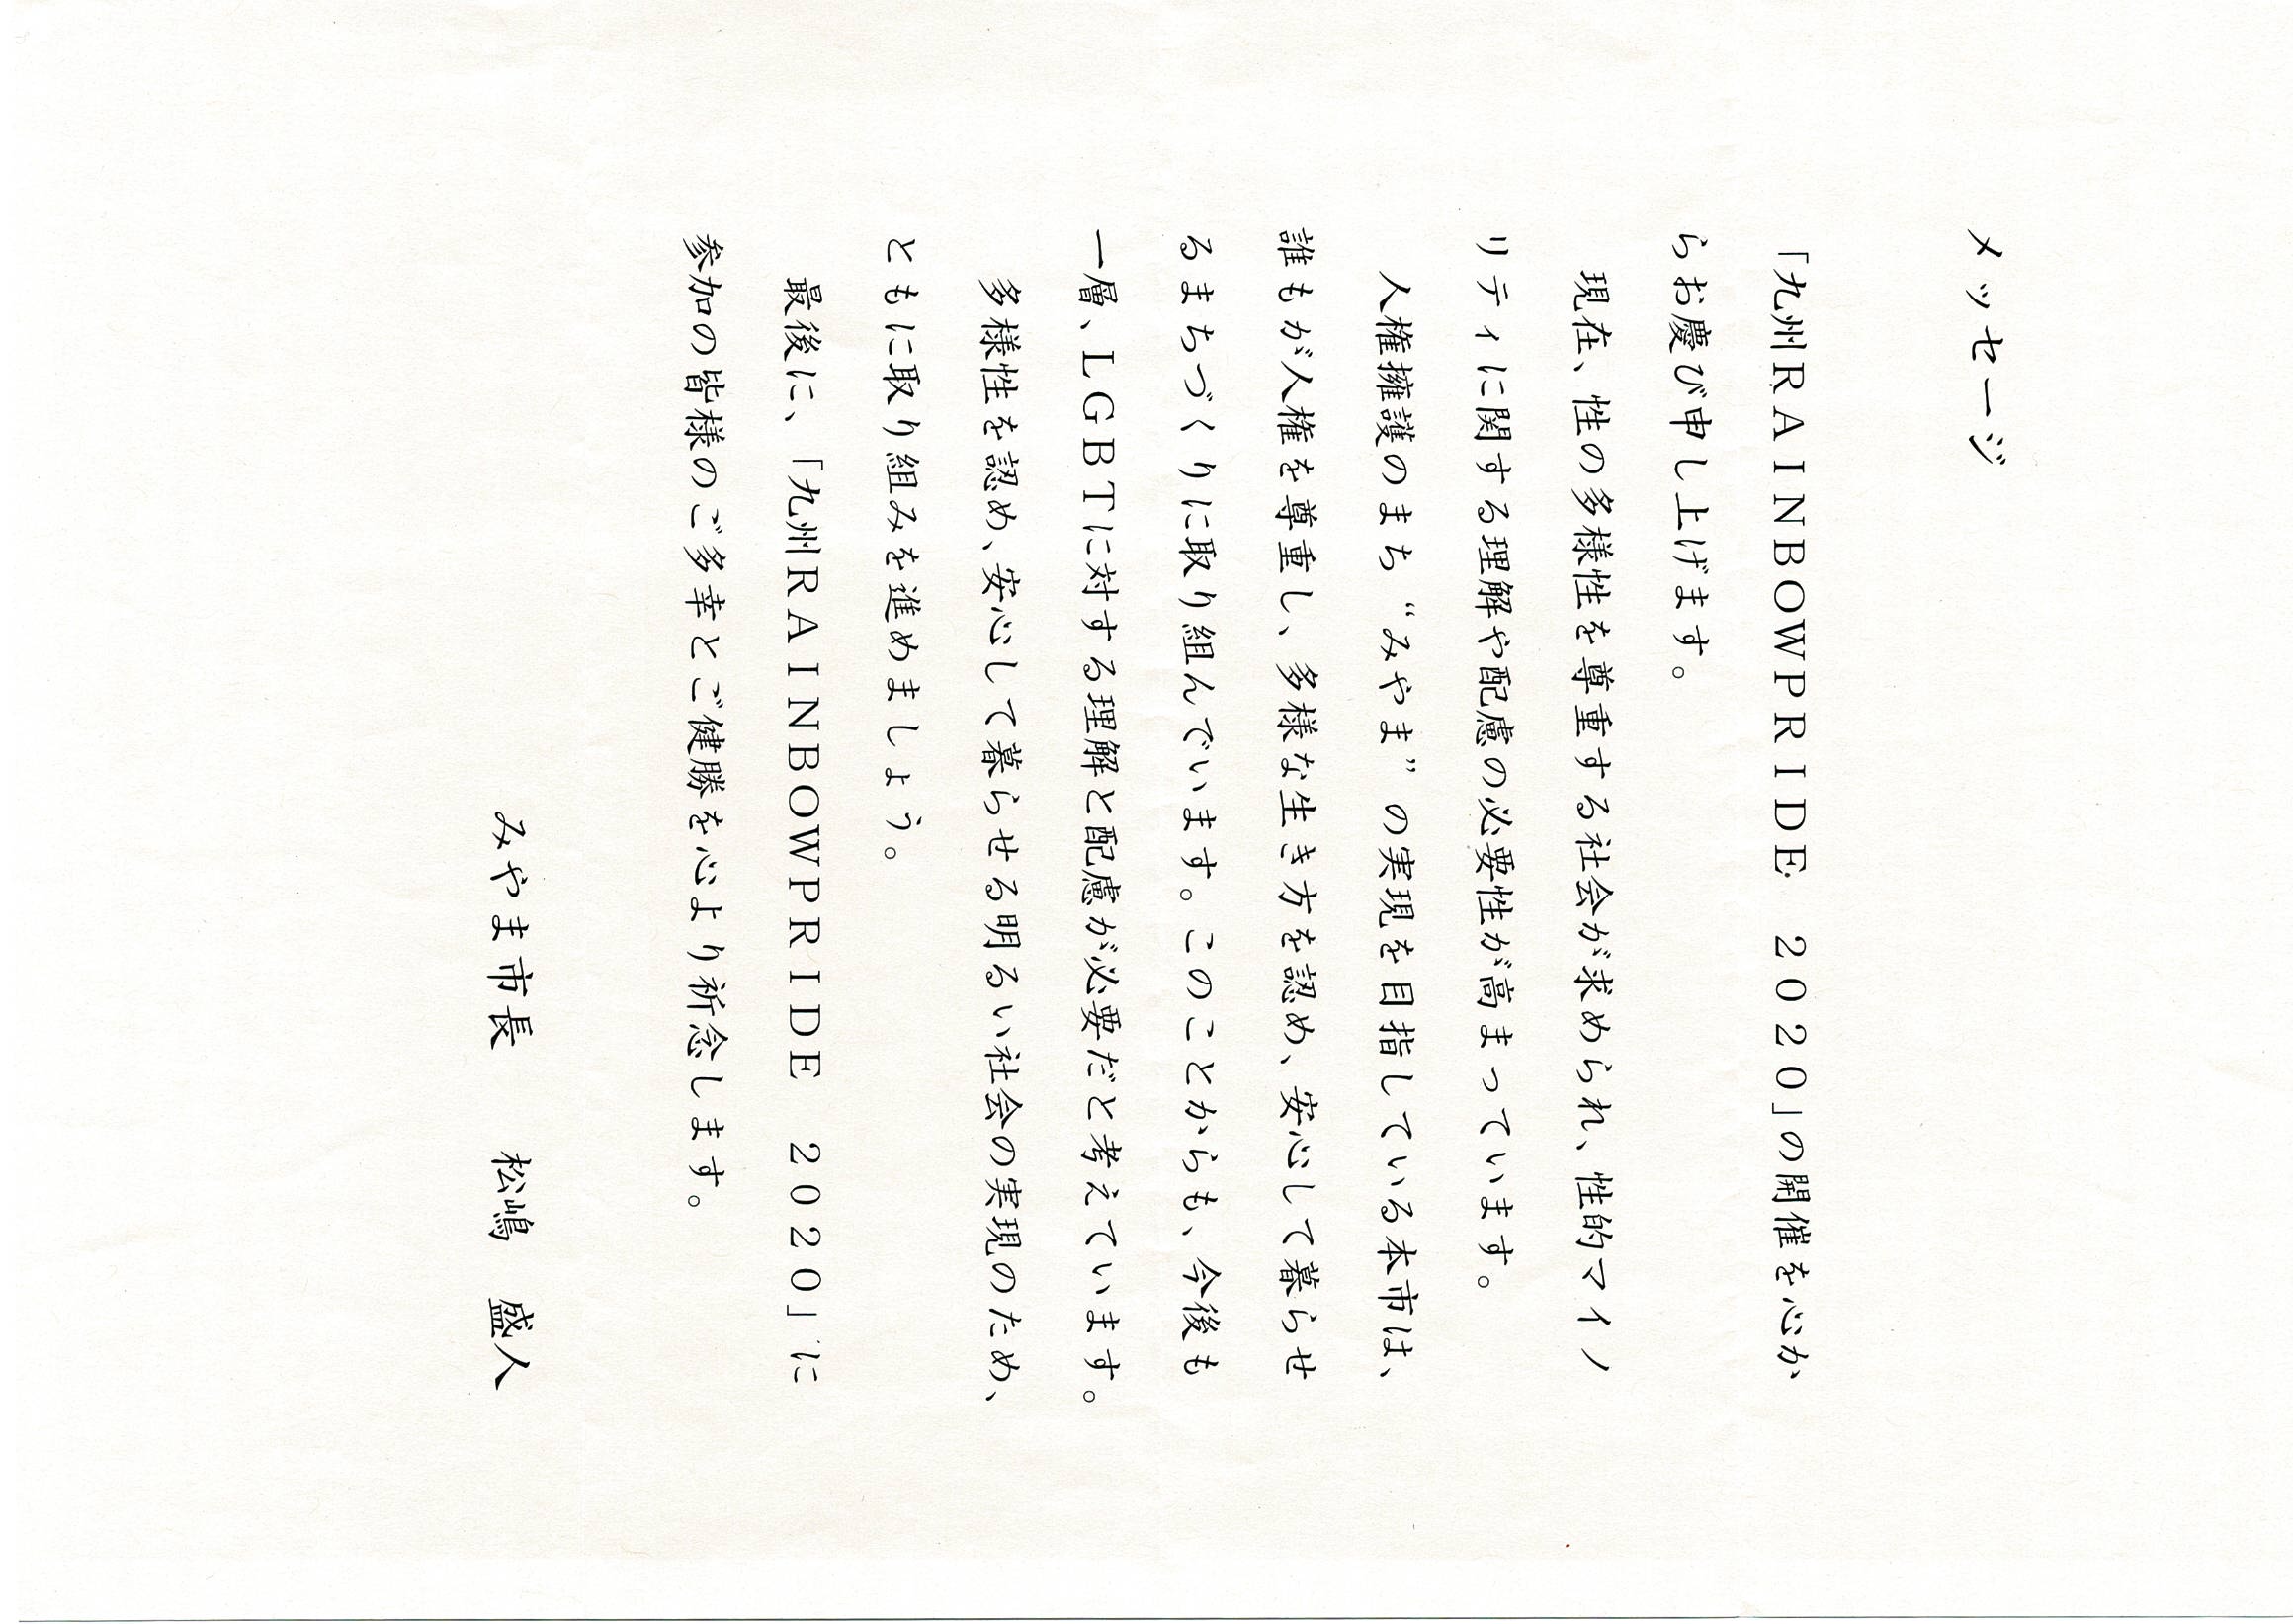 メッセージ
「九州RAINBOWPRIDE 2020」の開催を心か
らお慶び申し上げます。
現在、性の多様性を尊重する社会が求められ、性的マイノ
リティに関する理解や配慮の必要性が高まっています。
人権擁護のまち“みやま”の実現を目指している本市は、
誰もが人権を尊重し、多様な生き方を認め、安心して暮らせ
るまちづくりに取り組んでいます。このことからも、今後も
一層、LGBTに対する理解と配慮が必要だと考えています。
多様性を認め、安心して暮らせる明るい社会の実現のため、
ともに取り組みを進めましょう。
最後に、「九州RAINBOWPRIDE 2020」に
参加の皆様のご多幸とご健勝を心より祈念します。
みやま市長 松嶋 盛人